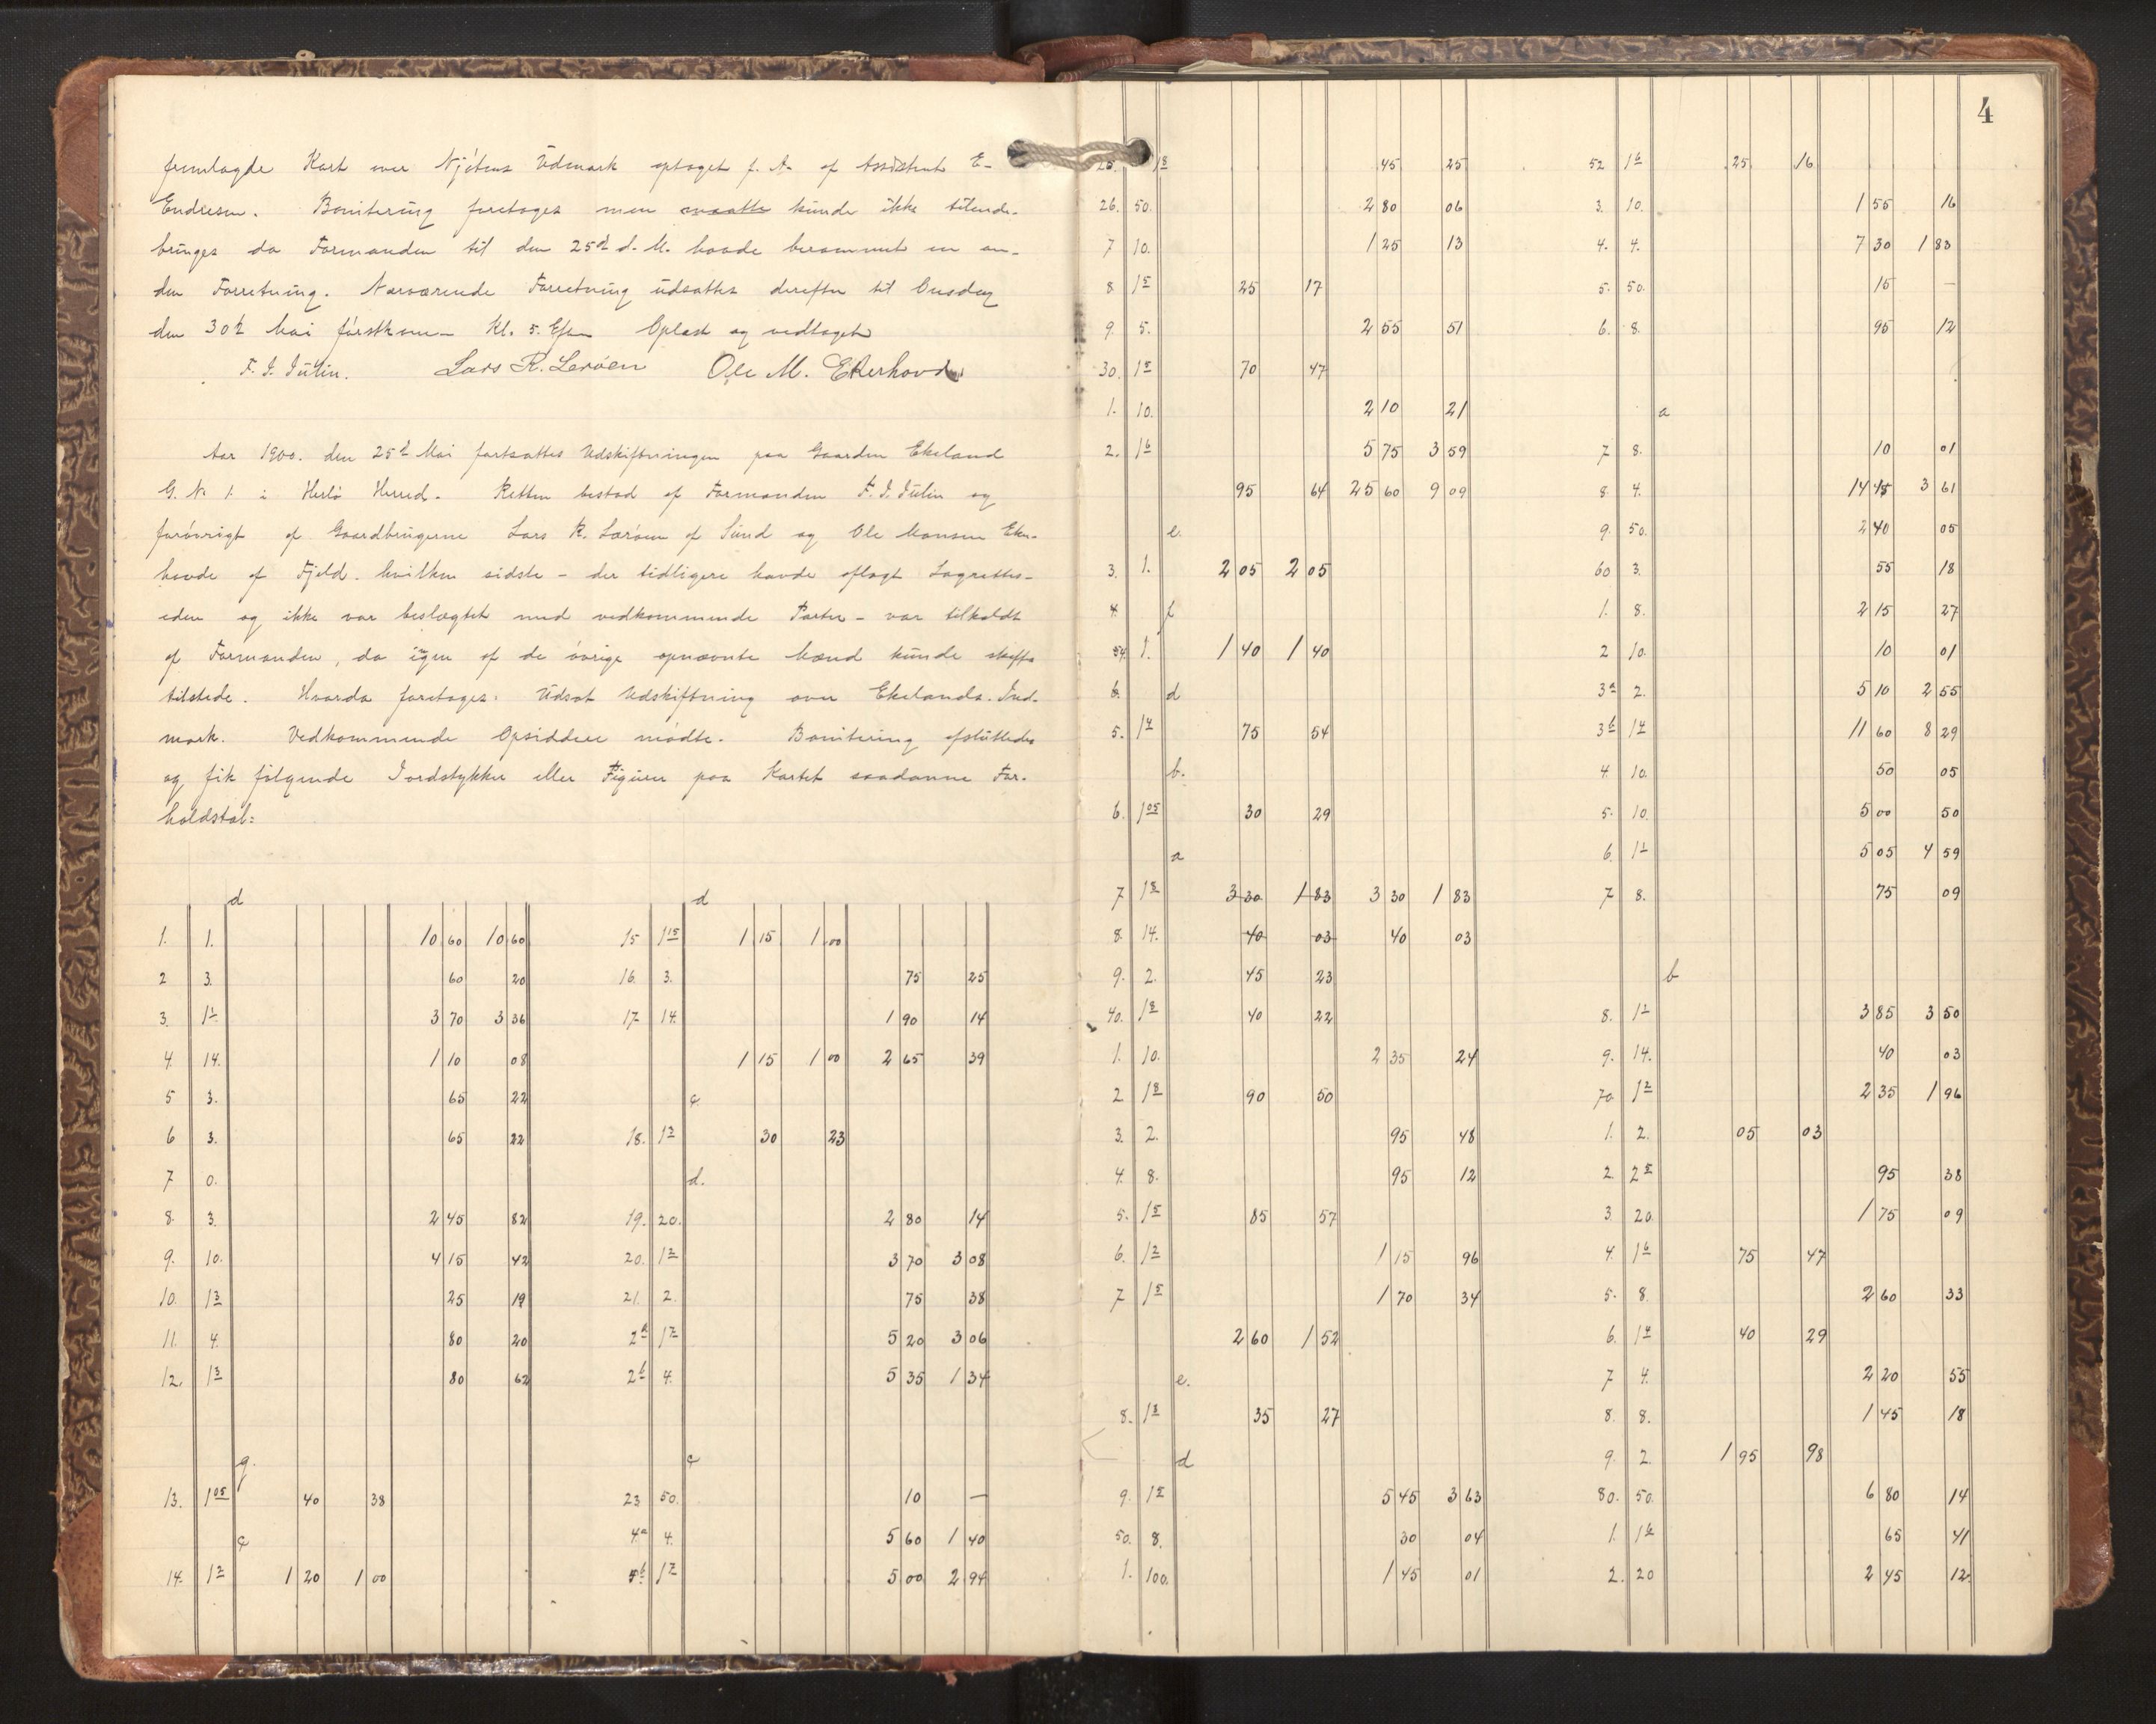 fremlagde Kart over Njøtens Udmark optaget f. A. af Assistent E-
Endresen. Bonitering foretoges men maatte kunde ikke tilende-
bringes da Formanden til den 25de d. M. havde berammet en an-
den Forretning. Nærværende Forretning udsattes derefter til Onsdag
den 30te Mai førstkom- Kl. 5. Efm Oplæst og vedtaget
F. J. Jutin. Lars R. Lerøen Ole M. Ekerhovd
Aar 1900. den 25de Mai fortsattes Udskiftningen paa Gaarden Ekeland
G. No 1. i Herlø Herred. Retten bestod af Formanden F. J. Jutin og
forøvrigt af Gaardbrugerne Lars R. Lerøen af Sund og Ole Monsen Eker-
hovde af Fjeld. hvilken sidste - der tidligere havde aflagt Lagrettes-
eden og ikke var beslægtet med vedkommende Parter - var tilkaldt
af Formanden, da ingen af de øvrige opnævnte Mænd kunde skaffes
tilstede. Hvorda foretoges: Udsat Udskiftning over Ekelands Ind-
mark. Vedkommende Opsiddere mødte. Bonitering afsluttedes
og fik følgende Jordstykker eller Figurer paa Kartet saadanne For-
holdstal:
d
1. 1. 10 60 10 60
2 3. 60 20
3. 1¹ 3 70 3 36
4. 14. 1 10 08
5 3. 65 22
6 3. 65 22
7 0.
8. 3. 2 45 82
9. 10. 4 15 42
10. 1³ 25 19
11. 4. 80 20
12. 1³ 80 62
g.
13. 1⁰⁵ 40 38
c
14. 1² 1 20 1 00
d
15 1¹⁵ 1 15 1 00
16. 3. 75 25
17 14. 1 90 14
1 15 1 00 2 65 39
c.
18. 1³ 30 23
d.
19. 20. 2 80 14
20. 1² 3 70 3 08
21. 2. 75 38
2a 1⁷ 5 20 3 06
2b 4. 5 35 1 34
c
23 50. 10 —
4a 4. 5 60 1 40
4b 1⁷ 5 00 2 94
4
25. 1⁸ 45 25
26. 50. 2 80 06
7 10. 1 25 13
8. 1⁵ 25 17
9. 5. 2 55 51
30. 1⁵ 70 47
1. 10. 2 10 21
2. 1⁶ 5 75 3 59
95 64 25 60 9 09
e.
3. 1. 2 05 2 05
4. f
34. 1. 1 40 1 40
6. d
5. 1⁴ 75 54
b.
6. 1⁰⁵ 30 29
a
7 1⁸ 3 30 1 83 3 30 1 83
8. 14. 40 03 40 03
9. 2. 45 23
40. 1⁸ 40 22
1. 10. 2 35 24
2 1⁸ 90 50
3. 2. 95 48
4. 8. 95 12
5. 1⁵ 85 57
6. 1² 1 15 96
7 1⁵ 1 70 34
2 60 1 52
e.
8. 1³ 35 27
d
9. 1⁵ 5 45 3 63
50. 8. 30 04
1. 100. 1 45 01
52 1⁶ 25 16
3. 10. 1 55 16
4. 4. 7 30 1 83
5. 50. 15 —
6. 8. 95 12
a
7 8. 10 01
8. 4. 14 45 3 61
9. 50. 2 40 05
60 3. 55 18
1. 8. 2 15 27
2 10. 10 01
3a 2. 5 10 2 55
3b 1⁴ 11 60 8 29
4 10. 50 05
5. 10. 5 00 50
6. 1¹ 5 05 4 59
7 8. 75 09
b
8. 1¹ 3 85 3 50
9. 14. 40 03
70 1² 2 35 1 96
1. 2. 05 03
2. 2⁵ 95 38
3. 20. 1 75 09
4. 1⁶ 75 47
5. 8. 2 60 33
6. 1⁴ 40 29
7 4. 2 20 55
8. 8. 1 45 18
9. 2. 1 95 98
80. 50. 6 80 14
1. 1⁶ 65 41
2. 20 2 45 12